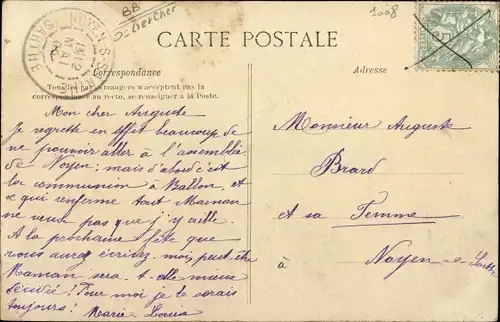 BB
a chercher
1008
CARTE POSTALE
Correspondance
Adresse
Tous les pays étrangers n'acceptent pas la
correspondance au recto, se renseigner à la Poste.
NOYEN S SARTHE
MAI
Mon cher Auguste
Je regrette en effet beaucoup de
ne pouvoir aller à l'assemblée
de Noyen; mais d'abord c'est
la communion à Ballon, et
ce qui renferme tout Maman
ne veut pas que j'y aille.
A la prochaine fête que
vous aurez écrivez-moi, peut être
Maman sera-t-elle mieux
! Pour moi je le serais
toujours! Marie-Louise
Monsieur Auguste
Brard
et sa Femme
à Noyen-s-Sarthe